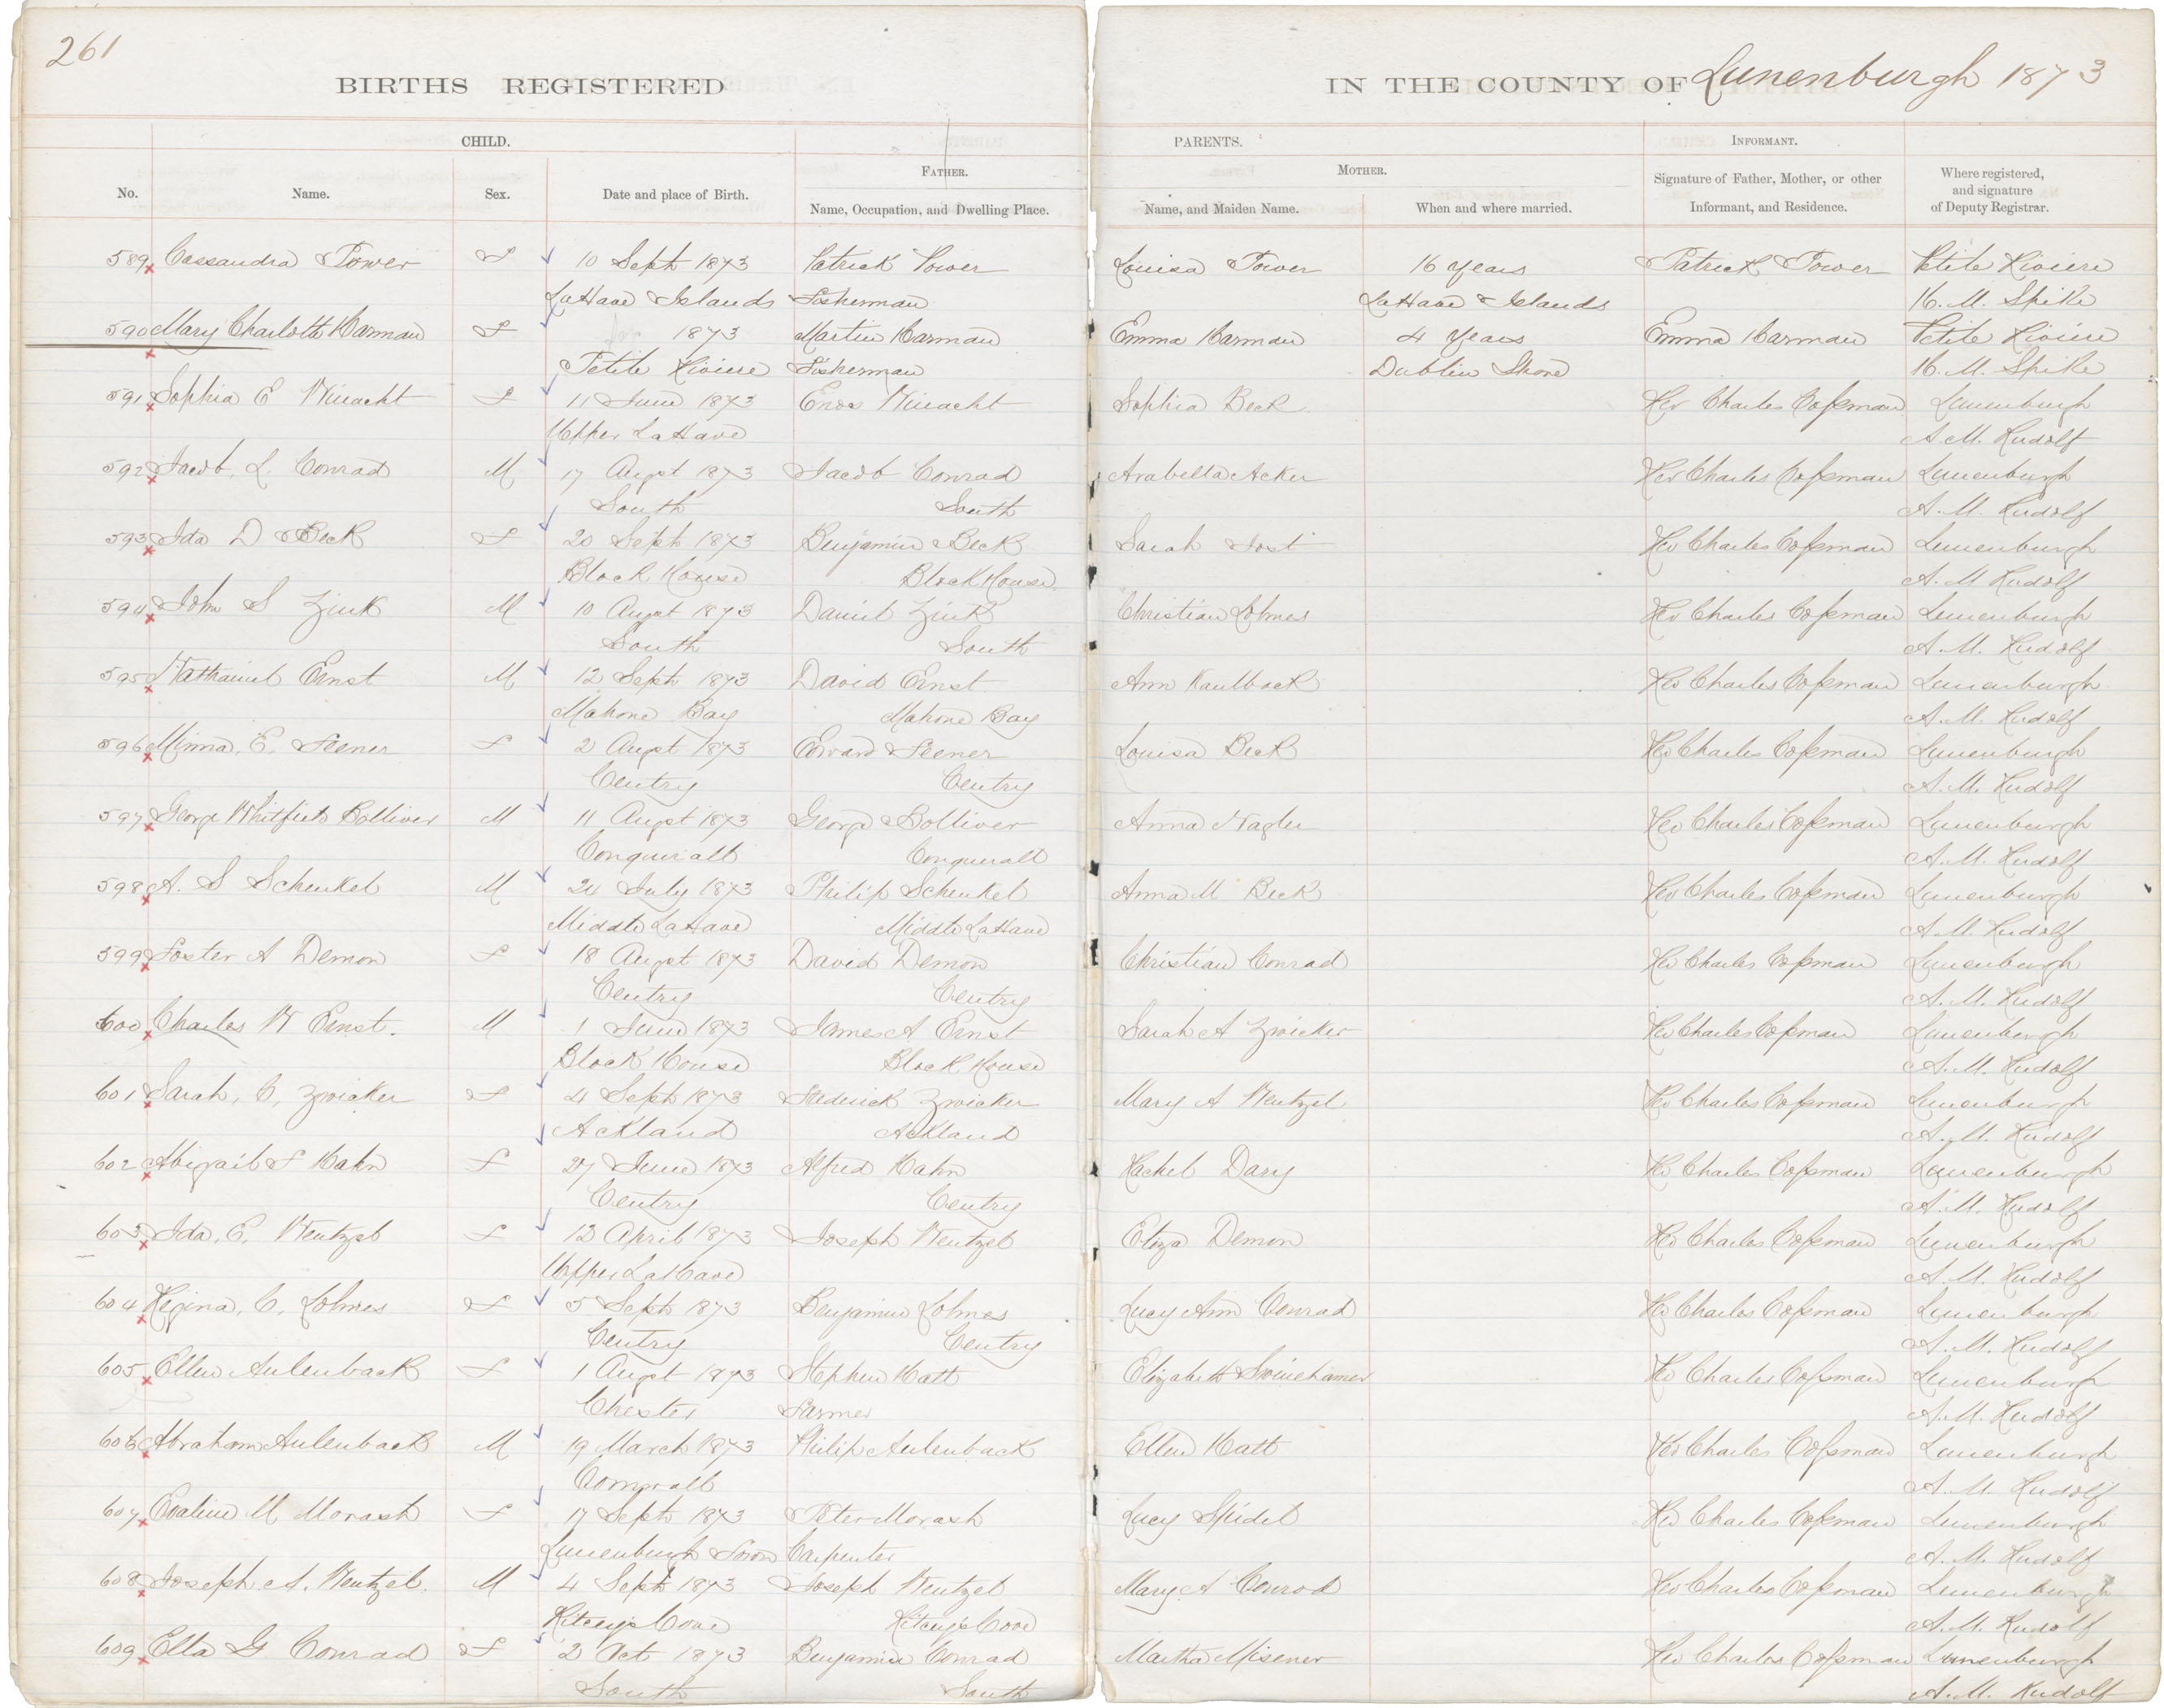 261
BIRTHS REGISTERED IN THE COUNTY OF Lunenburgh 1873
CHILD. PARENTS. INFORMANT.
FATHER. MOTHER.
No. Name. Sex. Date and place of Birth. Name, Occupation, and Dwelling Place. Name, and Maiden Name. When and where married. Signature of Father, Mother, or other Informant, and Residence. Where registered, and signature of Deputy Registrar.
589 Cassandra Power F 10 Sept 1873 Patrick Power Louisa Power 16 years Patrick Power Petite Riviere
LaHave Islands Fisherman LaHave Islands H. M. Spike
590 Mary Charlotte Harman F 1873 Martin Harman Emma Harman 4 years Emma Harman Petite Riviere
Petite Riviere Fisherman Dublin Shore H. M. Spike
591 Sophia E Winacht F 11 June 1873 Enos Winacht Sophia Beck Rev Charles Cossman Lunenburgh
Upper LaHave A. M. Rudolf
592 Jacob. L. Conrad M 17 Augst 1873 Jacob Conrad Arabella Acker Rev Charles Cossman Lunenburgh
South South A. M. Rudolf
593 Ida D Beck F 20 Sept 1873 Benjamin Beck Sarah Jost Rev Charles Cossman Lunenburgh
Block House Block House A. M. Rudolf
594 John S Zink M 10 Augst 1873 Daniel Zink Christian Lohnes Rev Charles Cossman Lunenburgh
South South A. M. Rudolf
595 Nathaniel Ernst M 12 Sept 1873 David Ernst Ann Kaulback Rev Charles Cossman Lunenburgh
Mahone Bay Mahone Bay A. M. Rudolf
596 Minna. E. Feener F 2 Augst 1873 Edward Feener Louisa Beck Rev Charles Cossman Lunenburgh
Centry Centry A. M. Rudolf
597 George Whitfield Bolliver M 11 Augst 1873 George Bolliver Anna Nagler Rev Charles Cossman Lunenburgh
Conquerall Conquerall A. M. Rudolf
598 A. S Schenkel M 24 July 1873 Philip Schenkel Anna M Beck Rev Charles Cossman Lunenburgh
Middle LaHave Middle LaHave A. M. Rudolf
599 Foster A Demon F 18 Augst 1873 David Demon Christian Conrad Rev Charles Cossman Lunenburgh
Centry Centry A. M. Rudolf
600 Charles W Ernst. M 1 June 1873 James A Ernst Sarah A Zwicker Rev Charles Cossman Lunenburgh
Block House Block House A. M. Rudolf
601 Sarah. C. Zwicker F 4 Sept 1873 Frederick Zwicker Mary A Wentzel Rev Charles Cossman Lunenburgh
Ackland Ackland A. M. Rudolf
602 Abigail F Hahn F 27 June 1873 Alfred Hahn Rachel Dary Rev Charles Cossman Lunenburgh
Centry Centry A. M. Rudolf
603 Ida. E. Wentzel F 12 April 1873 Joseph Wentzel Eliza Demon Rev Charles Cossman Lunenburgh
Upper LaHave A. M. Rudolf
604 Regina. C. Lohnes F 5 Sept 1873 Benjamin Lohnes Lucy Ann Conrad Rev Charles Cossman Lunenburgh
Centry Centry A. M. Rudolf
605 Ellen Aulenback F 1 Augst 1873 Stephen Hatt Elizabeth Swinehamer Rev Charles Cossman Lunenburgh
Chester Farmer A. M. Rudolf
606 Abraham Aulenback M 19 March 1873 Philip Aulenback Ellen Hatt Rev Charles Cossman Lunenburgh
A. M. Rudolf
607 Evaline M Morash F 17 Sept 1873 Peter Morash Lucy Spidel Rev Charles Cossman Lunenburgh
Lunenburgh Town Carpenter A. M. Rudolf
608 Joseph A. Wentzel. M 4 Sept 1873 Joseph Wentzel Mary A Conrod Rev Charles Cossman Lunenburgh
Ritcey's Cove Ritcey's Cove A. M. Rudolf
609 Ella G. Conrad F 2 Oct 1873 Benjamin Conrad Martha Misener Rev Charles Cossman Lunenburgh
South South A. M. Rudolf